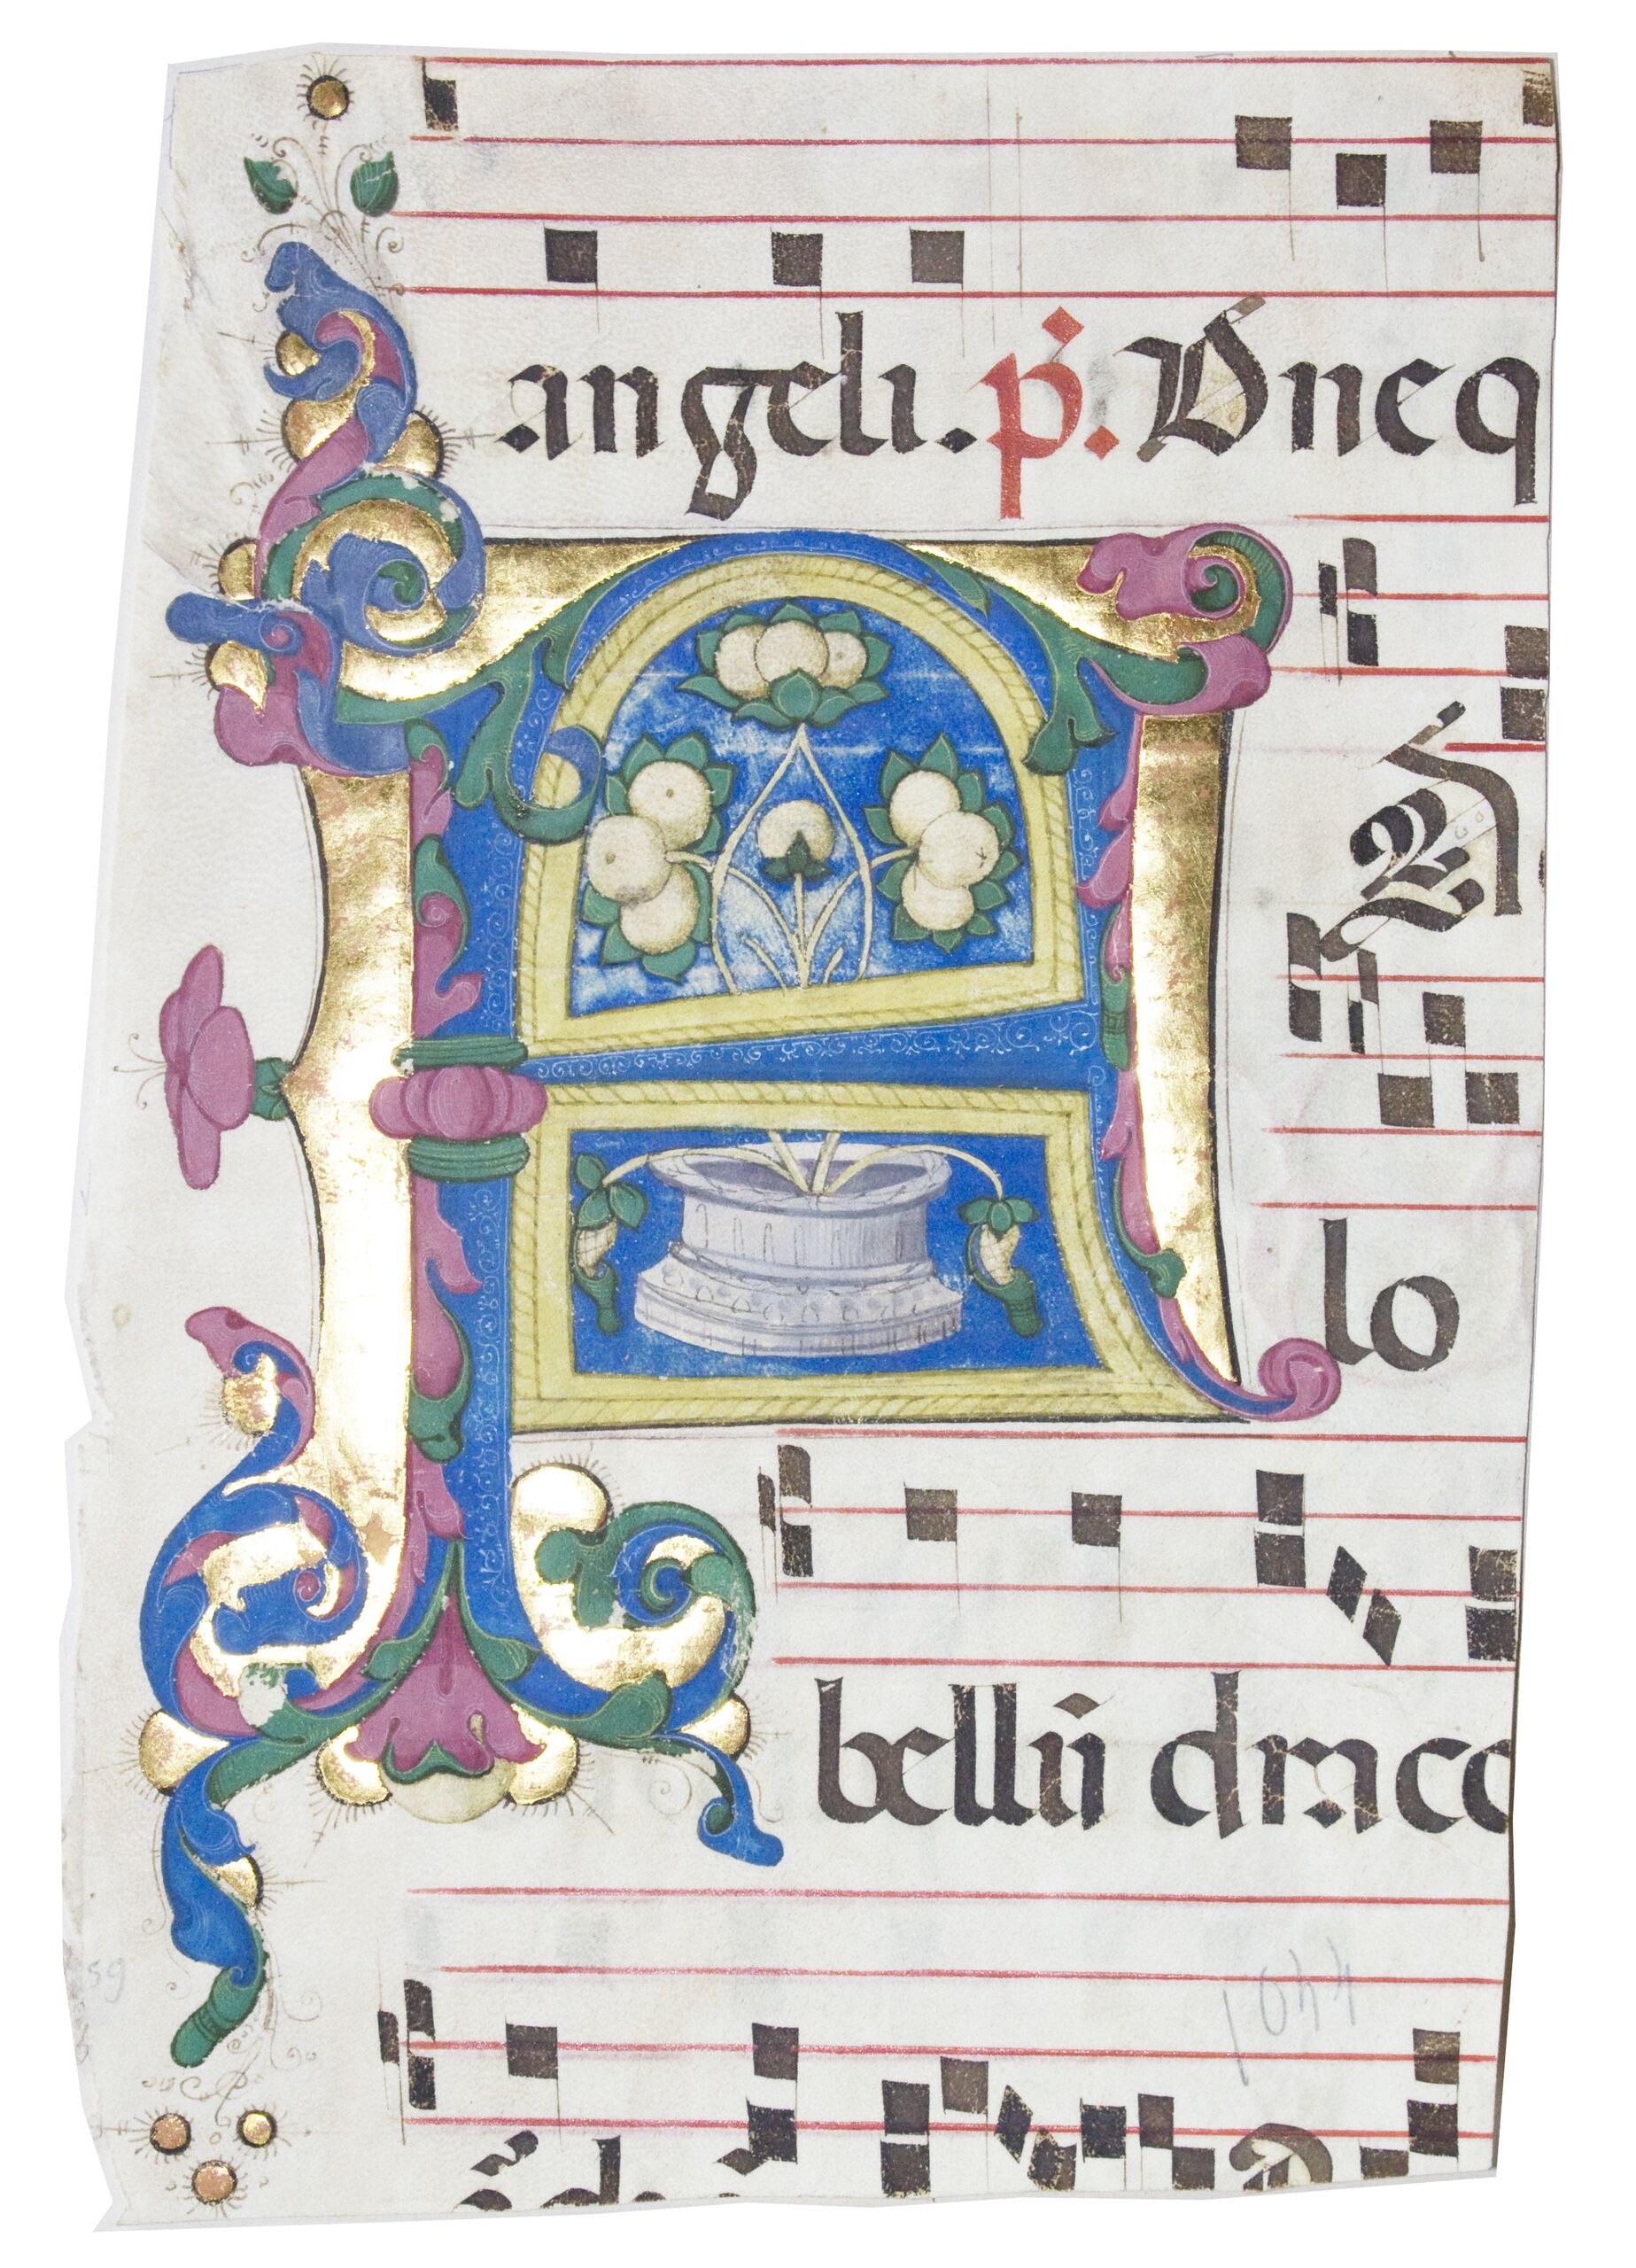 angeli. p̄. Dn̄e q
FA
lo
bellū draco
1044